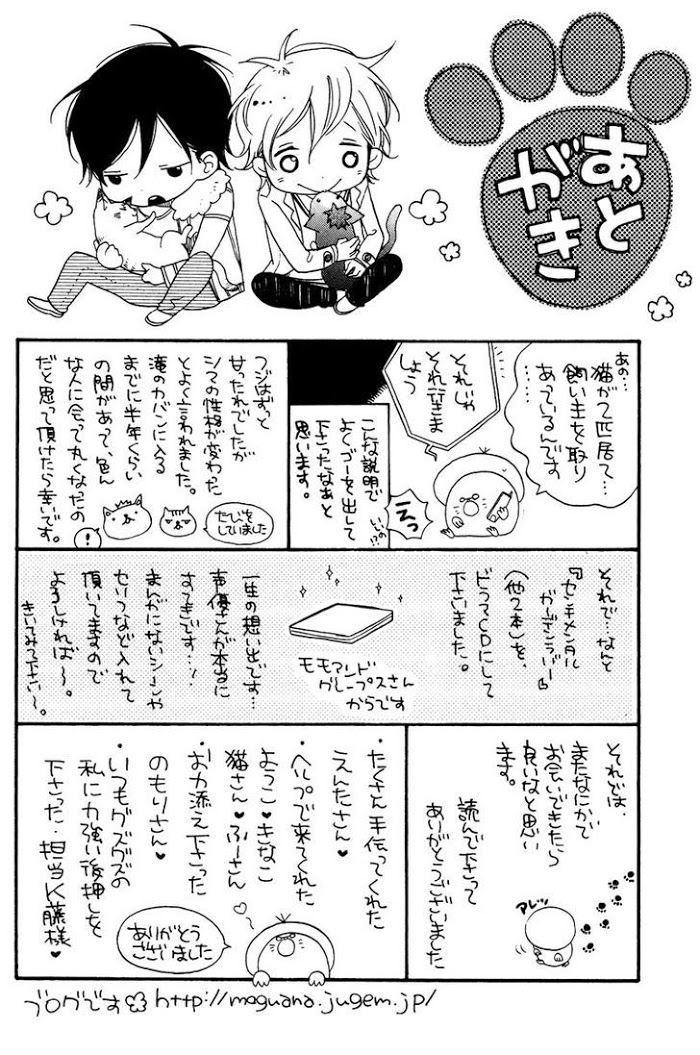 あと
がき
あの…
猫が2匹居て…
飼い主を取り
あっているんです
それじゃ
それ行きま
しょう
えっ
いいの!?
こんな説明で
よくゴーを出して
下さったなあと
思います。
フジはずっと
甘ったれでしたが
シマの性格が変わった
とよく言われました。
滝のカバンに入る
までに半年くらい
の間があって、色ん
な人に会って丸くなったの
だと思って頂けたら幸いです。
たびを
していました
!
それで…なんと
『センチメンタル
ガーデンラバー』
(他2本)を、
ドラマCDにして
下さいました。
モモアンド
グレープスさん
からです
一生の想い出です…
声優さんが本当に
すてきです…!
まんがにないシーンや
セリフなど入れて
頂いてますので
よろしければ〜。
きいてみて下さい〜。
それでは、
またなにかで
お会いできたら
良いなと思い
ます。
読んで下さって
ありがとうございました
アレッ
・たくさん手伝ってくれた
えんたさん♥
・ヘルプで来てくれた
ようこ♥きなこ
猫さん♥ふーさん
・お力添え下さった
のもりさん♥
・いつもグズグズの
私に力強い後押しを
下さった・担当K藤様♥
ありがとう
ございました
ブログです http://moguana.jugem.jp/